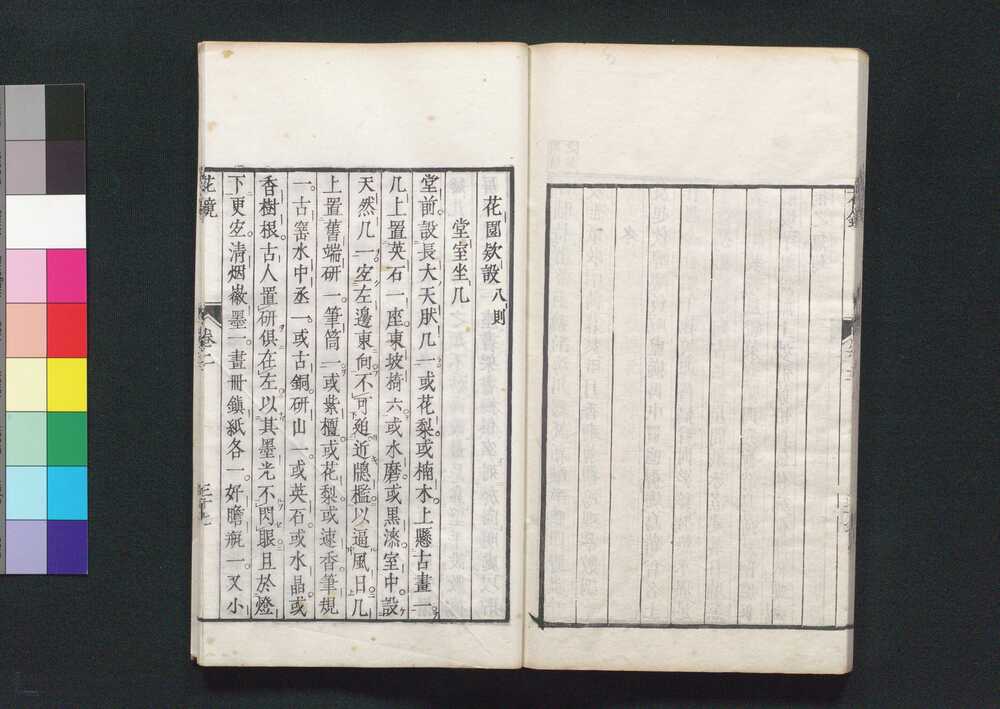 花園欵設八則
堂室坐几
堂前設長大天肰几一或花梨或楠木上懸古畫一
几上置英石一座東坡椅六或水磨或黒漆室中設
天然几一安左邊東向不可廹近牕檻以逼風日几
上置舊端硏一筆筒一或紫檀或花梨或速香筆規
一古窰水中丞一或古銅硏山一或英石或水晶或
香樹根古人置硏俱在左以其墨光不閃眼且於燈
下更安清烟徽墨一畫冊鎭紙各一好膽瓶一又小
花鏡
卷二
三十七